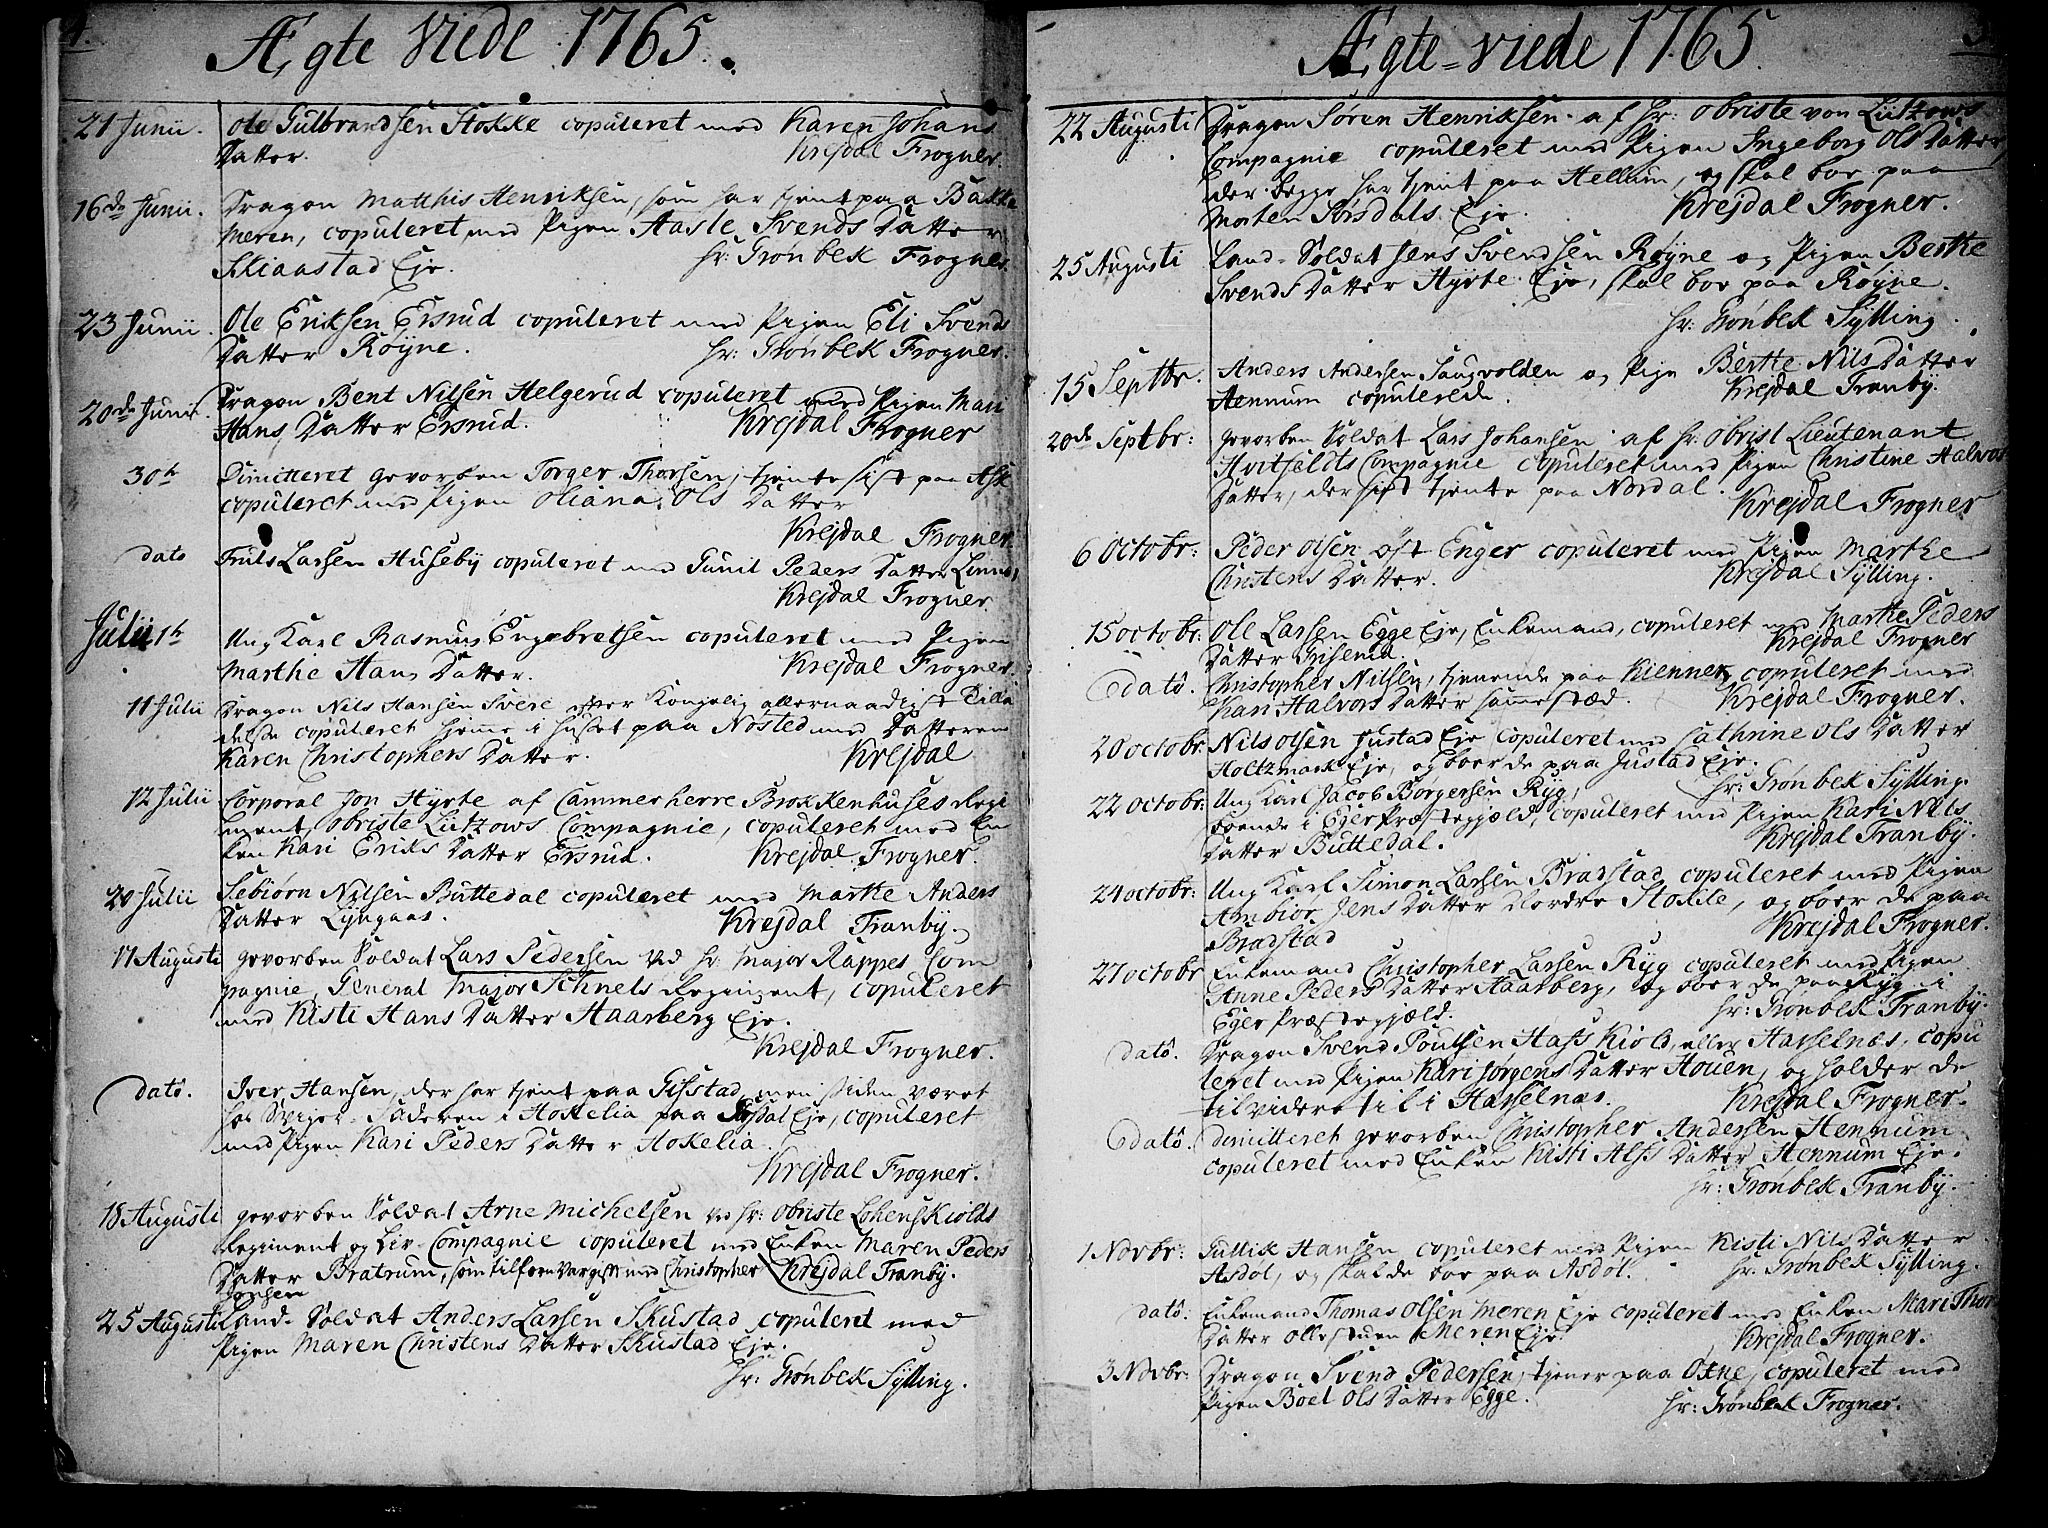 4.
Ægte Viede 1765.
21 Junii. Ole Gulbrandsen Stokke copuleret med Karen Johans
Datter. Krejdal Frogner.
16de Junii. Dragon Matthis Henriksen, som har tient paa Bakke
Meren, copuleret med Pigen Aasle Svends Datter
Skiaastad Eje. Hr: Grønbek Frogner.
23 Junii. Ole Eriksen Ersrud copuleret med Pigen Eli Svends
Datter Røÿne. Hr: Grønbek Frogner.
20de Junii. Dragon Bent Nilsen Helgerud copuleret med Pigen Mari
Hans Datter Ersrud. Krejdal Frogner
30th Dimitteret gevorben Torger Thorsen, tjente sist paa Ask
copuleret med Pigen Oliana Ols Datter
Krejdal Frogner.
dato Truls Larsen Husebÿ copuleret med Gunil Peders Datter Linnes,
Krejdal Frogner
Julii 1th Ung Karl Rasmus Engebretsen copuleret med Pigen
Marthe Hans Datter. Krejdal Frogner.
11 Julii Dragon Nils Hansen Svere efter Kongelig allernaadigst Tilla
delse copuleret hjemme i Huset paa Nøsted med Datteren
Karen Christophers Datter. Krejdal
12 Julii Corporal Jon Hÿrte af Cammerherre Brokkenhuses Regi
ment, Obriste Lützows Compagnie, copuleret med En
ken Kari Eriks Datter Ersrud. Krejdal Frogner.
20 Julii Sebiørn Nilsen Buttedal copuleret med Marthe Anders
Datter Lÿngaas. Krejdal Tranbÿ.
17 Augusti gevorben Soldat Lars Pedersen ved Hr: Major Rappes Com
pagnie, General Major Schnels Regiment, copuleret
med Kisti Hans Datter Haarberg Eje.
Krejdal Frogner.
dato. Iver Hansen, der har tjent paa Gisstad, men siden været
hos Svigerfaderen i Hokelia paa Eje, copuleret
med Pigen Kari Peders Datter Hokelia.
Krejdal Frogner.
18 Augusti gevorben Soldat Arne Michelsen ved Hr: Obriste Lohenskiolds
Regiment og Liv-Compagnie copuleret med Enken Maren Peders
Datter Bratrum, som tilforn var gift med Christopher Krejdal Tranbÿ.
Jonsen
25 Augusti Land-Soldat Anders Larsen Skustad copuleret med
Pigen Maren Christens Datter Skustad Eje.
Hr: Grønbek Sÿlling.
5
Ægte-viede 1765
22 Augusti Dragon Søren Henriksen af Hr: Obriste von Lützows
Compagnie copuleret med Pigen Ingeborg Ols Datter,
der begge har tjent paa Hellum, og skal boe paa
Morten Sørsdals Eje. Krejdal Frogner.
25 Augusti Land-Soldat Jens Svendsen Røÿne og Pigen Berthe
Svends Datter Hÿrte Eje, skal boe paa Røÿne.
Hr: Grønbek Sÿlling.
15 Septbr. Anders Andersen Saugvolden og Pige Berthe Nils Datter
Hennum copulerede. Krejdal Tranbÿ.
20de Septbr: gevorben Soldat Lars Johansen af Hr: Obrist Lieutenant
Hvitfeldts Compagnie copuleret med Pigen Christine Halvors
Datter, der sist tjente paa Nordal. Krejdal Frogner
6 Octobr: Peder Olsen øst Enger copuleret med Pigen Marthe
Christens Datter. Krejdal Sÿlling.
15 octobr: Ole Larsen Egge Eje, Enkemand, copuleret med Marthe Peders
Datter Grisenid. Krejdal Frogner
dato. Christopher Nilsen, tjenende paa Kienner, copuleret med
Kari Halvors Datter sammested. Krejdal Frogner.
20 octobr: Nils Olsen Justad Eje copuleret med Cathrine Ols Datter
Holtzmark Eje, og boer de paa Justad Eje.
Hr: Grønbek Sÿlling.
22 octobr: Ung Karl Jacob Børgersen Rÿg,
boende i Eger Præstegjæld, copuleret med Pigen Kari Nils
Datter Buttedal. Krejdal Tranbÿ.
24 octobr: Ung Karl Simon Larsen Bradstad copuleret med Pigen
Ambiør Jens Datter Nordre Stokke, og boer de paa
Bradstad Krejdal Frogner.
27 octobr Enkemand Christopher Larsen Rÿg copuleret med Pigen
Anne Peders Datter Haarberg, og boer de paa Rÿg i
Eger Præstegjæld. Hr: Grønbek Tranbÿ.
dato. Dragon Svend Poulsen Hasskiold eller Hasselnæs, copu
leret med Pigen Kari Jørgens Datter Houen, og holder de
til videre til i Hasselnæs. Krejdal Frogner.
dato. dimitteret gevorben Christopher Andersen Hennum
copuleret med Enken Kisti Alfs Datter Hennum Eje.
Hr: Grønbek Tranbÿ.
1 Novbr: Gullik Hansen copuleret med Pigen Kisti Nils Datter
Asdøl, og skal de boe paa Asdøl. Hr: Grønbek Sÿlling.
dato: Enkemand Thomas Olsen Meren Eje copuleret med Enken Mari Thor
Datter Ollestuen Meren Eje. Krejdal Frogner.
3 Novbr: Dragon Svend Pedersen, tjener paa Oxne, copuleret med
Pigen Boel Ols Datter Egge. Hr: Grønbek Frogner.